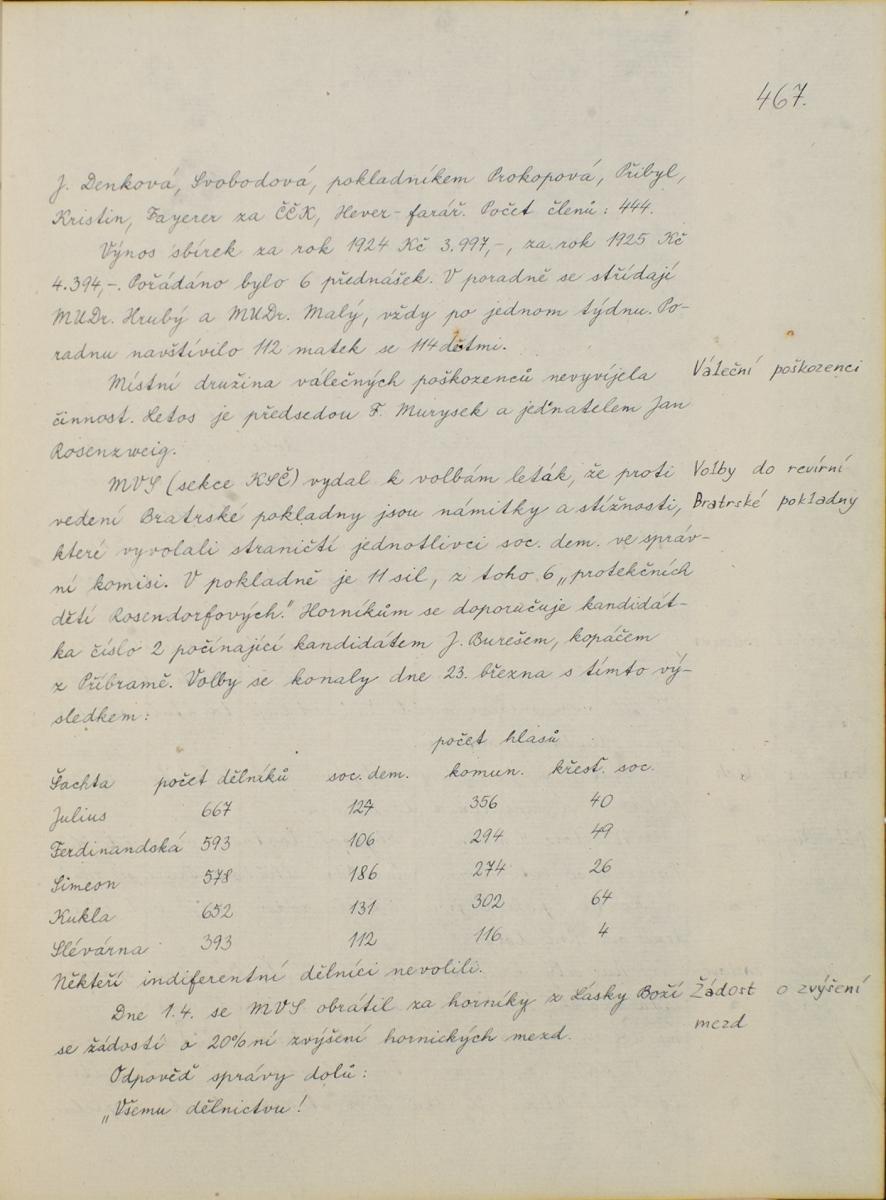 467.
J. Denková, Svobodová, pokladníkem Prokopová, Přibyl,
Kristin, Fayerer za ČČK, Hever - farář. Počet členů: 444.
Výnos sbírek za rok 1924 Kč 3.997,-, za rok 1925 Kč
4.394,-. Pořádáno bylo 6 přednášek. V poradně se střídají
MUDr. Hrubý a MUDr. Malý, vždy po jednom týdnu. Po-
radnu navštívilo 112 matek se 114 dětmi.
Místní družina válečných poškozenců nevyvíjela
Váleční poškozenci
činnost. Letos je předsedou F. Murysek a jednatelem Jan
Rosenzweig.
MVS (sekce KSČ) vydal k volbám leták, že proti
Volby do revírní
vedení Bratrské pokladny jsou námitky a stížnosti,
Bratrské pokladny
které vyvolali straničtí jednotlivci soc. dem. ve správ-
ní komisi. V pokladně je 11 sil, z toho 6 „protekčních
dětí Rosendorfových." Horníkům se doporučuje kandidát-
ka číslo 2 počínající kandidátem J. Burešem, kopáčem
z Příbramě. Volby se konaly dne 23. března s tímto vý-
sledkem:
počet hlasů
Šachta počet dělníků soc. dem. komun. křesť. soc.
Julius 667 127 356 40
Ferdinandská 593 106 294 49
Simeon 578 186 274 26
Kukla 652 131 302 64
Slévárna 393 112 116 4
Někteří indiferentní dělníci nevolili.
Dne 1.4. se MVS obrátil za horníky z Lásky Boží
Žádost o zvýšení
se žádostí o 20%ní zvýšení hornických mezd.
mezd
Odpověď správy dolů:
„Všemu dělnictvu!